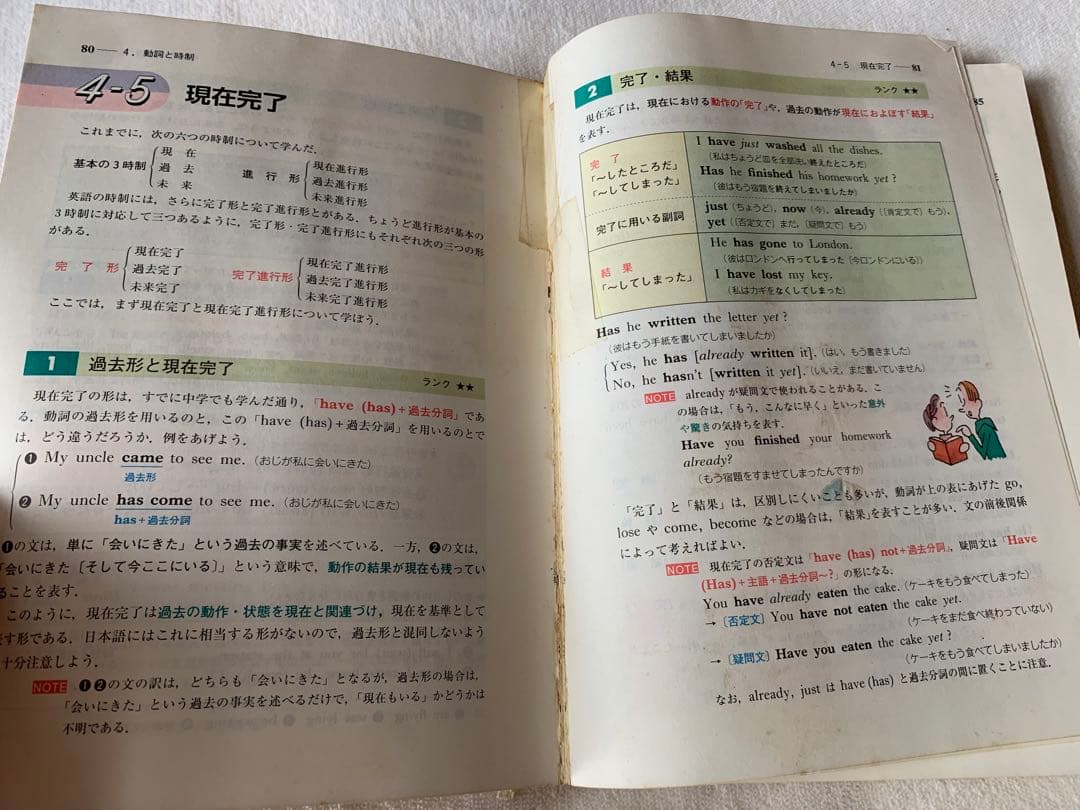 80 — 4. 動詞と時制
4-5 現在完了
これまでに，次の六つの時制について学んだ．
基本の3時制 現在 過去 未来 進行形 現在進行形 過去進行形 未来進行形
英語の時制には，さらに完了形と完了進行形とがある．ちょうど進行形が基本の
3時制に対応して三つあるように，完了形・完了進行形にもそれぞれ次の三つの形
がある．
完了形 現在完了 過去完了 未来完了 完了進行形 現在完了進行形 過去完了進行形 未来完了進行形
ここでは，まず現在完了と現在完了進行形について学ぼう．
1 過去形と現在完了 ランク ★★
現在完了の形は，すでに中学でも学んだ通り，「have (has)+過去分詞」であ
る．動詞の過去形を用いるのと，この「have (has)+過去分詞」を用いるのとで
は，どう違うだろうか．例をあげよう．
❶ My uncle came to see me.（おじが私に会いにきた）
過去形
❷ My uncle has come to see me.（おじが私に会いにきた）
has+過去分詞
❶の文は，単に「会いにきた」という過去の事実を述べている．一方，❷の文は，
「会いにきた〔そして今ここにいる〕」という意味で，動作の結果が現在も残ってい
ることを表す．
このように，現在完了は過去の動作・状態を現在と関連づけ，現在を基準として
す形である．日本語にはこれに相当する形がないので，過去形と混同しないよう
十分注意しよう．
NOTE ❶❷の文の訳は，どちらも「会いにきた」となるが，過去形の場合は，
「会いにきた」という過去の事実を述べるだけで，「現在もいる」かどうかは
不明である．
4-5 現在完了 — 81
2 完了・結果 ランク ★★
現在完了は，現在における動作の「完了」や，過去の動作が現在におよぼす「結果」
を表す．
完了
「〜したところだ」
「〜してしまった」
I have just washed all the dishes.
（私はちょうど皿を全部洗い終えたところだ）
Has he finished his homework yet?
（彼はもう宿題を終えてしまいましたか）
完了に用いる副詞
just（ちょうど），now（今），already（〔肯定文で〕もう），
yet（〔否定文で〕まだ，〔疑問文で〕もう）
結果
「〜してしまった」
He has gone to London.
（彼はロンドンへ行ってしまった〔今ロンドンにいる〕）
I have lost my key.
（私はカギをなくしてしまった）
Has he written the letter yet?
（彼はもう手紙を書いてしまいましたか）
Yes, he has [already written it].（はい，もう書きました）
No, he hasn't [written it yet].（いいえ，まだ書いていません）
NOTE alreadyが疑問文で使われることがある．こ
の場合は，「もう，こんなに早く」といった意外
や驚きの気持ちを表す．
Have you finished your homework
already?
（もう宿題をすませてしまったんですか）
「完了」と「結果」は，区別しにくいことも多いが，動詞が上の表にあげたgo,
loseやcome, becomeなどの場合は，「結果」を表すことが多い．文の前後関係
によって考えればよい．
NOTE 現在完了の否定文は「have (has) not+過去分詞」，疑問文は「Have
(Has)+主語+過去分詞〜?」の形になる．
You have already eaten the cake.（ケーキをもう食べてしまった）
→〔否定文〕You have not eaten the cake yet.
（ケーキをまだ食べ終わっていない）
→〔疑問文〕Have you eaten the cake yet?
（ケーキをもう食べてしまいましたか）
なお，already, justはhave (has)と過去分詞の間に置くことに注意．
85